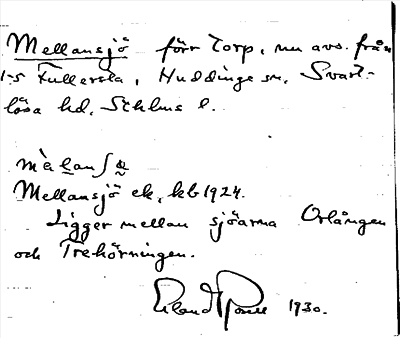 Mellansjö förr torp, nu avs. från
1-5 Fullersta, Huddinge sn, Svart-
lösa hd, Sthlms l.
Mellansjö ek, kb 1924.
Ligger mellan sjöarna Orlången
och Trehörningen.
Erland Rosell 1930.